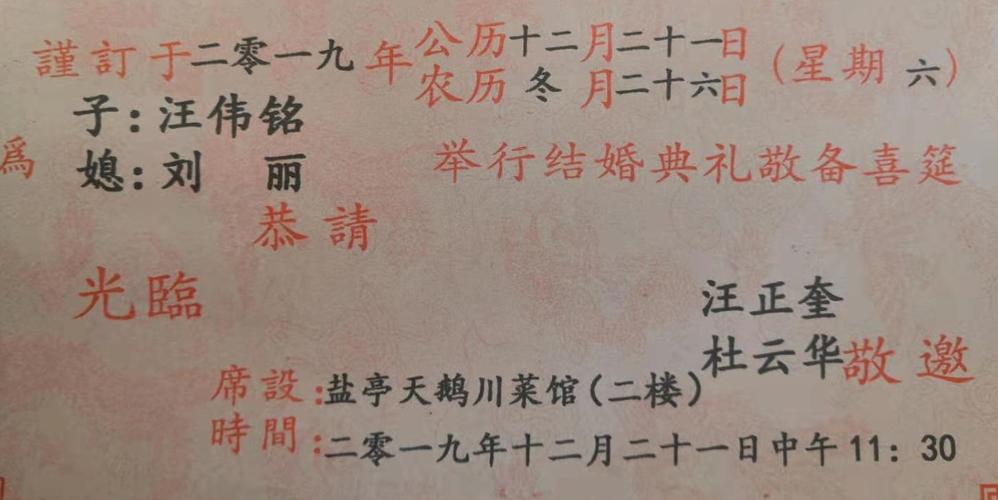 謹訂于二零一九年公历十二月二十一日（星期六）
农历冬月二十六日
子：汪伟铭
為
媳：刘 丽
举行结婚典礼敬备喜筵
恭請
光臨
汪正奎
杜云华敬邀
席設：盐亭天鹅川菜馆（二楼）
時間：二零一九年十二月二十一日中午11：30